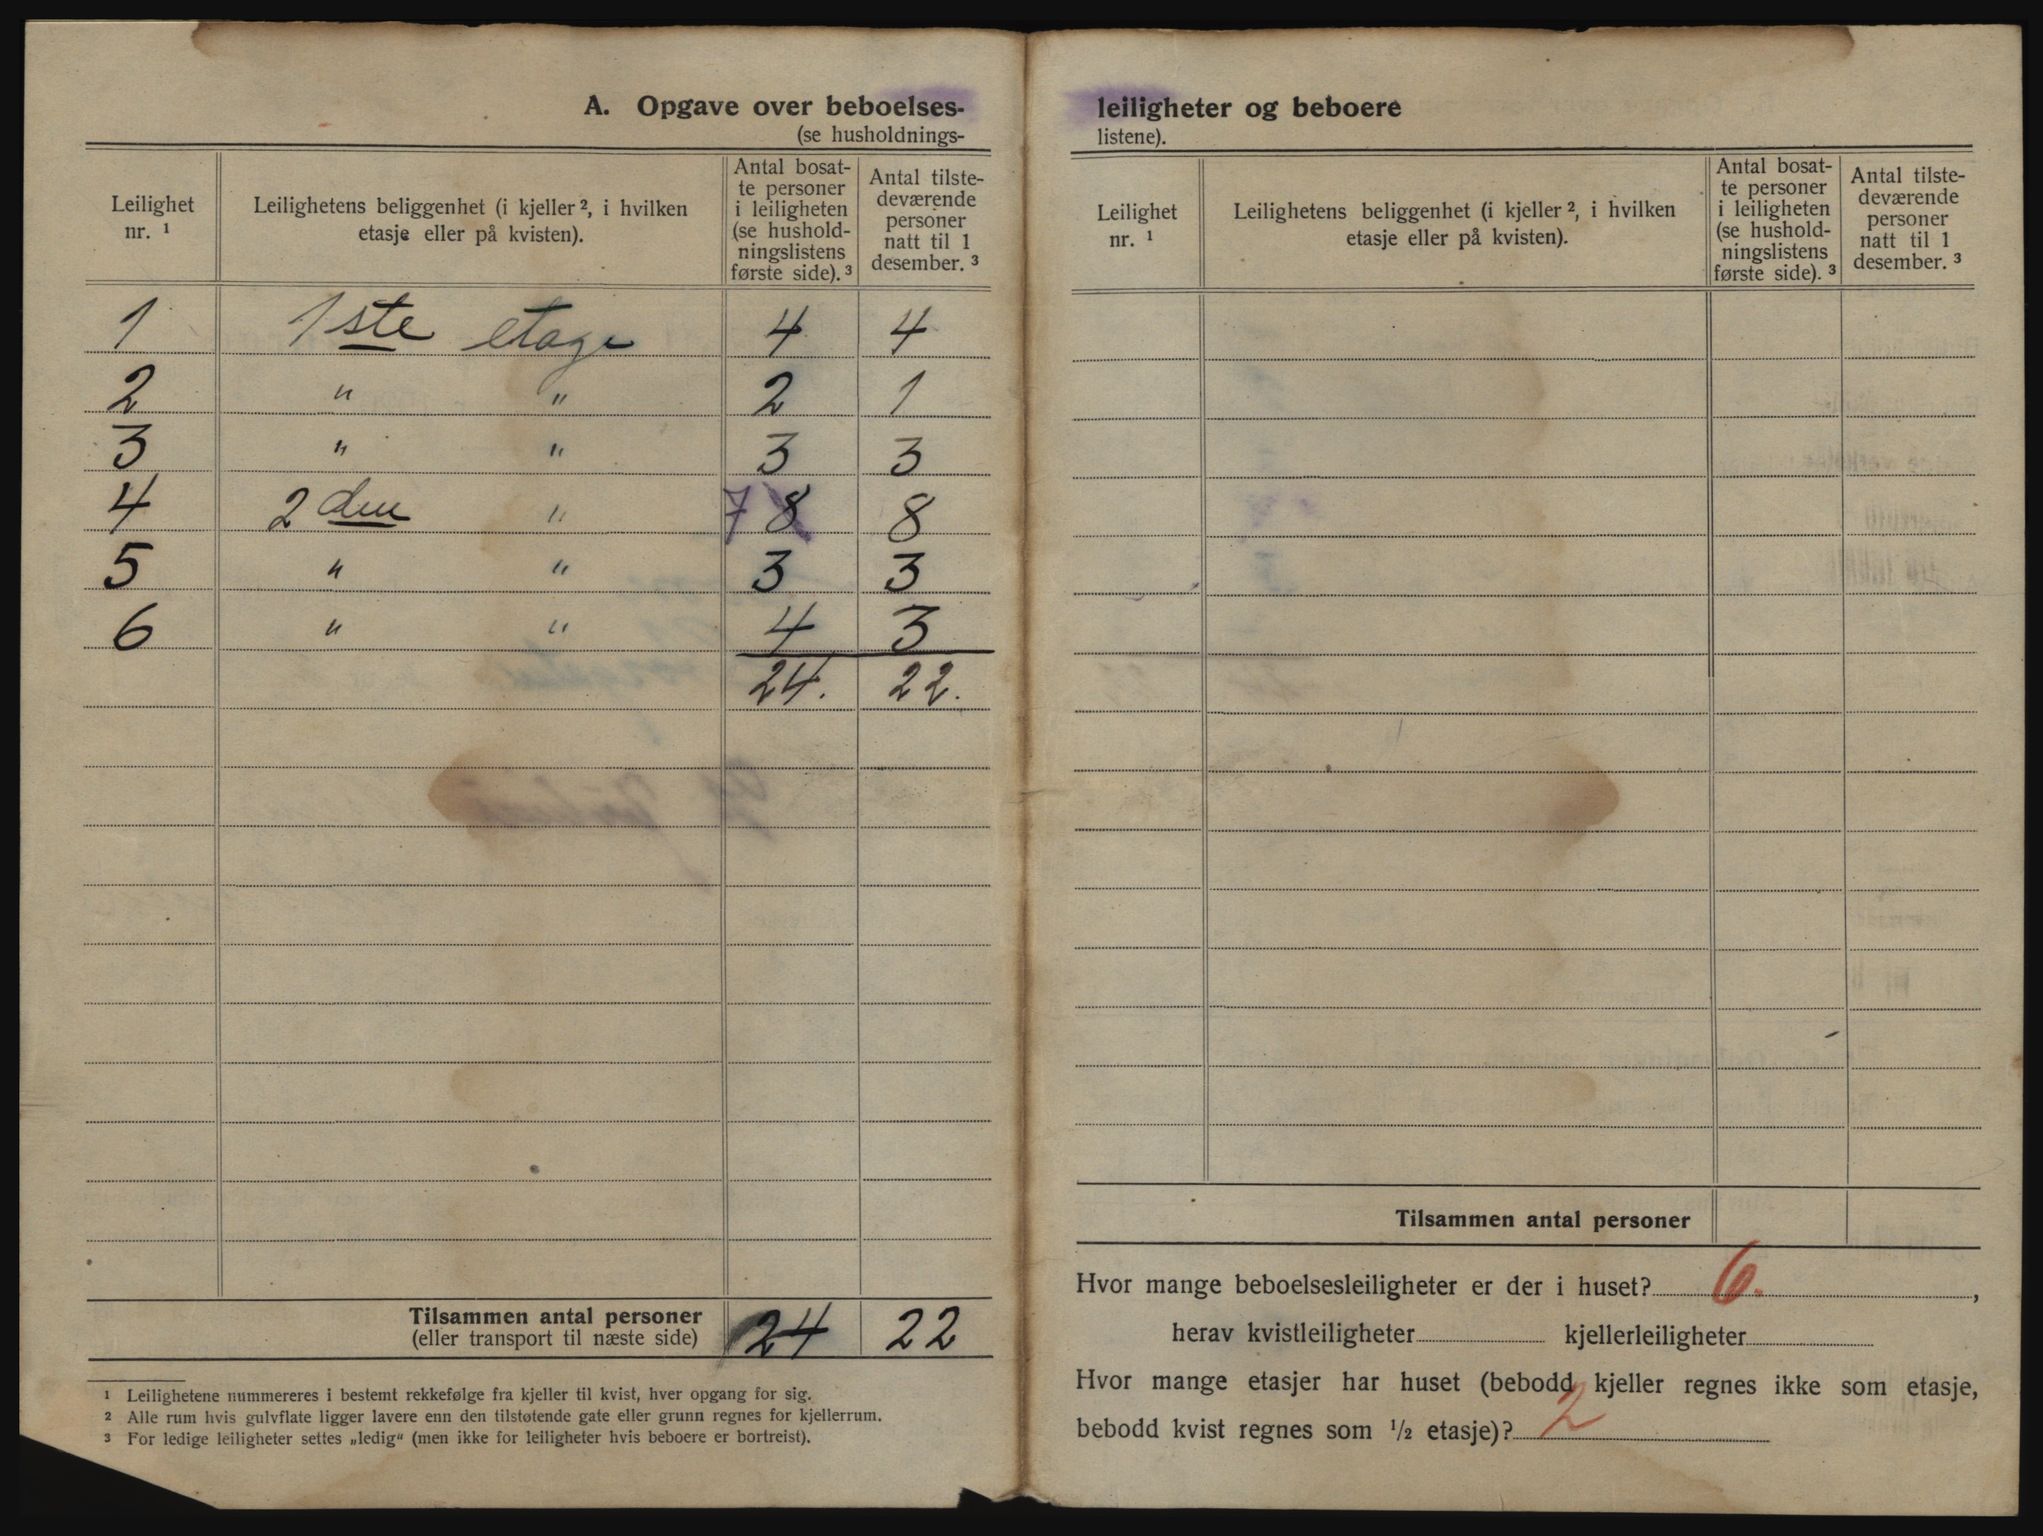 A. Opgave over beboelses-
(se husholdnings-
Leilighet nr. 1
Leilighetens beliggenhet (i kjeller 2, i hvilken
etasje eller på kvisten).
Antal bosat-
te personer
i leiligheten
(se hushold-
ningslistens
første side). 3
Antal tilste-
deværende
personer
natt til 1
desember. 3
1 1ste etage 4 4
2 " " 2 1
3 " " 3 3
4 2den " 7 8 8
5 " " 3 3
6 " " 4 3
24. 22.
Tilsammen antal personer 24 22
(eller transport til næste side)
1 Leilighetene nummereres i bestemt rekkefølge fra kjeller til kvist, hver opgang for sig.
2 Alle rum hvis gulvflate ligger lavere enn den tilstøtende gate eller grunn regnes for kjellerrum.
3 For ledige leiligheter settes „ledig“ (men ikke for leiligheter hvis beboere er bortreist).
leiligheter og beboere
listene).
Leilighet
nr. 1
Leilighetens beliggenhet (i kjeller 2, i hvilken
etasje eller på kvisten).
Antal bosat-
te personer
i leiligheten
(se hushold-
ningslistens
første side). 3
Antal tilste-
deværende
personer
natt til 1
desember. 3
Tilsammen antal personer
Hvor mange beboelsesleiligheter er der i huset? 6. ,
herav kvistleiligheter kjellerleiligheter
Hvor mange etasjer har huset (bebodd kjeller regnes ikke som etasje,
bebodd kvist regnes som 1/2 etasje)? 2